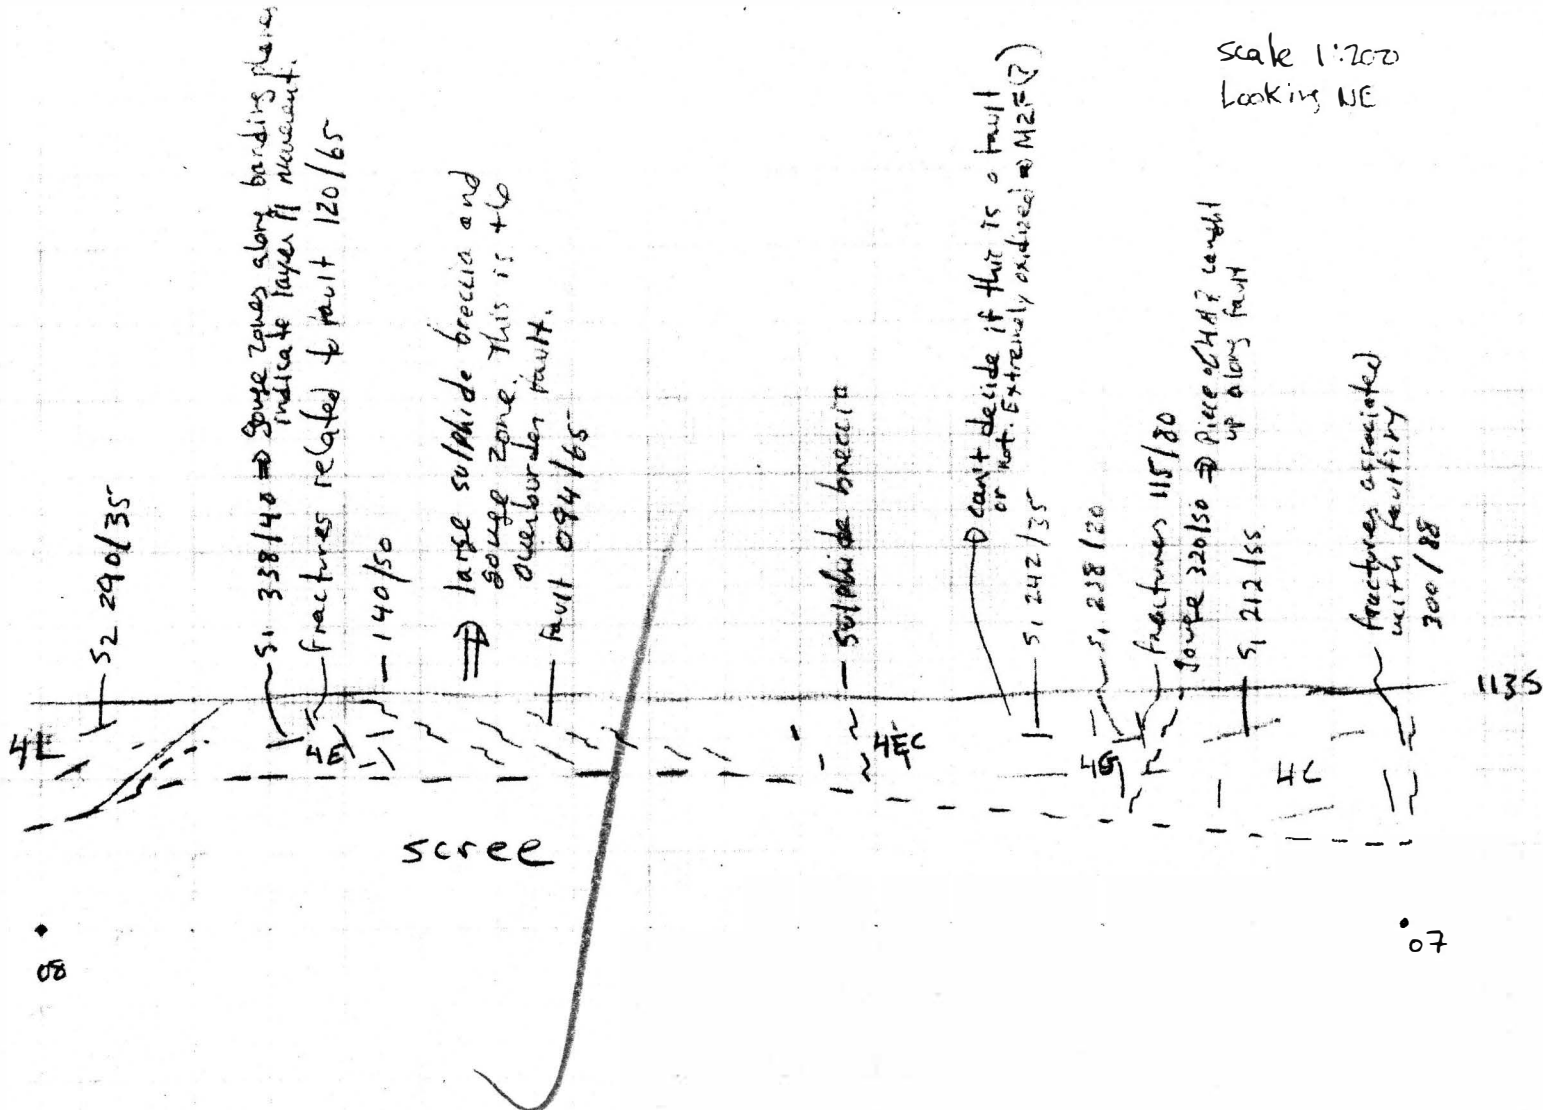 scale 1:200
Looking NE
S2 290/35
S1 338/40 ⇒ gouge zones along banding planes
indicate layer // movement.
fractures related to fault 120/65
140/50
⇒ large sulphide breccia and
gouge zone. This is the
Overburden fault.
fault 094/65
sulphide breccia
can't decide if this is a fault
or not. Extremely oxidized ⇒ M2F(?)
S1 242/35
S1 238/20
fractures 115/80
gouge 320/50 ⇒ Piece of 4A? caught
up along fault
S1 212/55
fractures associated
with faulting
300/88
1135
4L
4E
4EC
4G
4L
scree
08
07